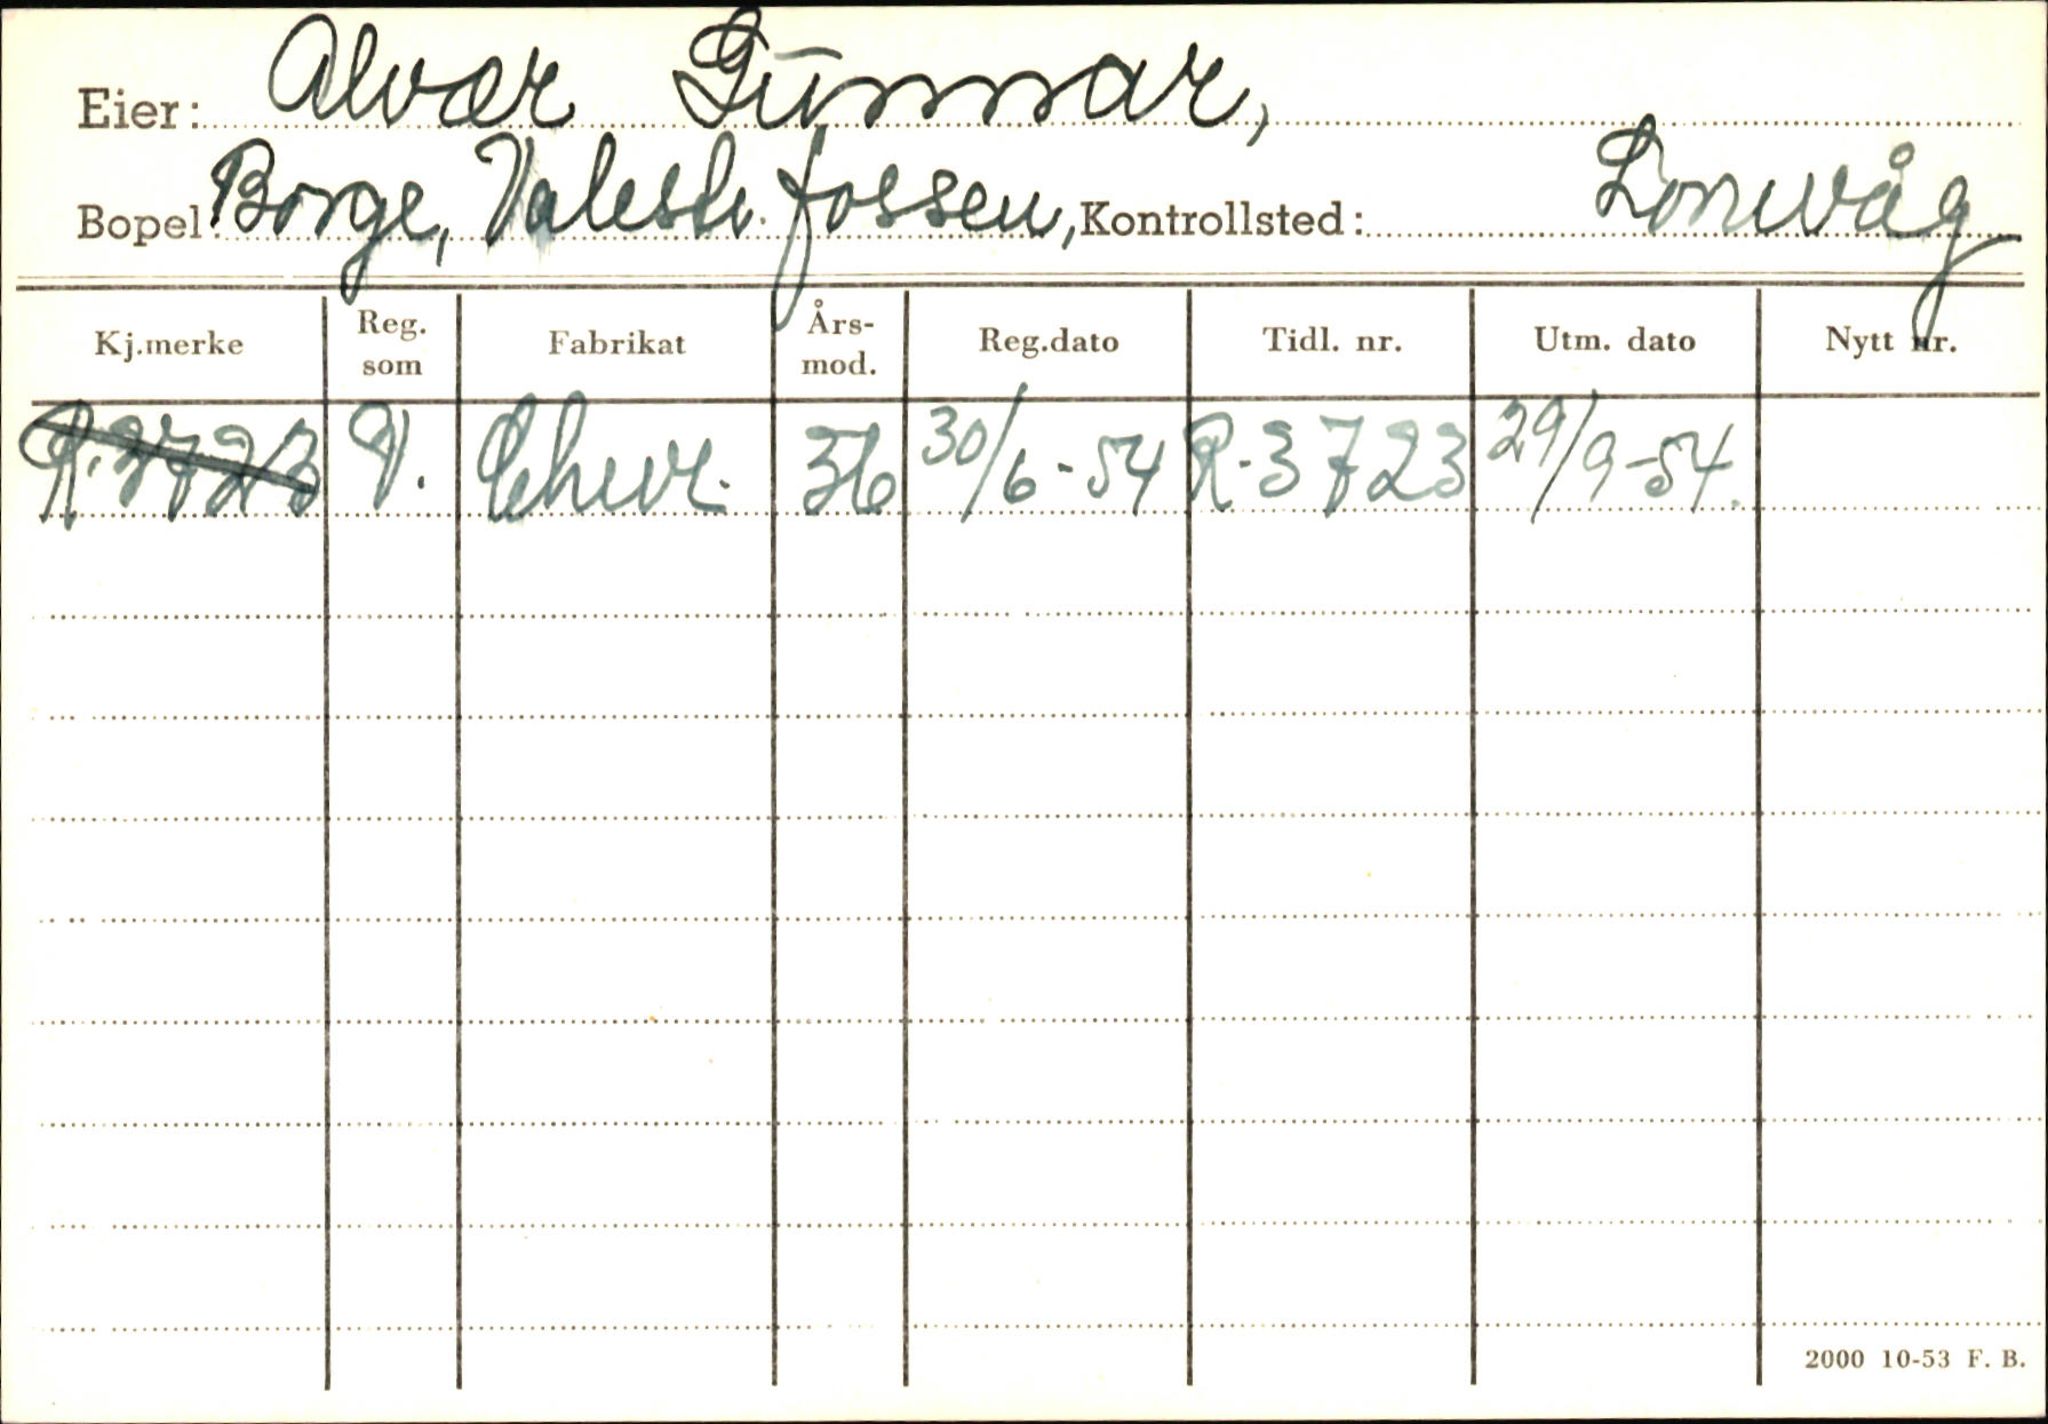 Eier: Alvær Gunnar,
Bopel: Borge, Valestr.fossen, Kontrollsted: Lonevåg
Kj.merke Reg. som Fabrikat Års-mod. Reg.dato Tidl. nr. Utm. dato Nytt nr.
R.3723 V. Chevr. 36 30/6-54 R-3723 29/9-54.
2000 10-53 F. B.